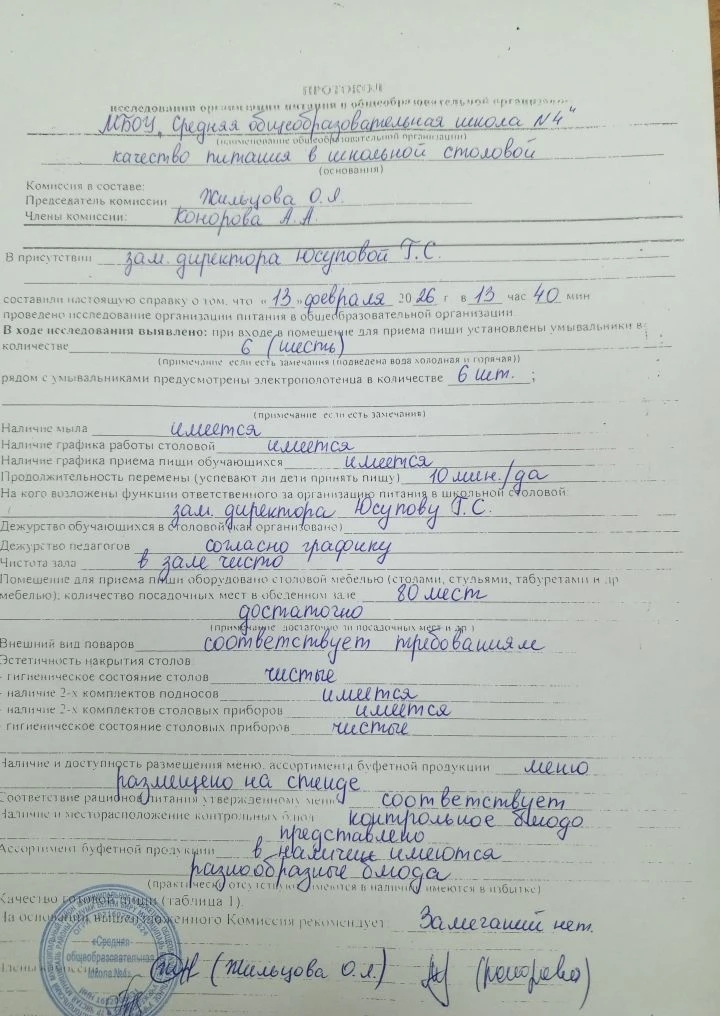 ПРОТОКОЛ
исследования организации питания в общеобразовательной организации
МБОУ "Средняя общеобразовательная школа №4"
(наименование общеобразовательной организации)
качество питания в школьной столовой
(основания)
Комиссия в составе:
Председатель комиссии Жильцова О.Я.
Члены комиссии: Конорова А.А.
В присутствии зам. директора Юсуповой Г.С.
составили настоящую справку о том, что «13» февраля 2026 г в 13 час 40 мин
проведено исследование организации питания в общеобразовательной организации.
В ходе исследования выявлено: при входе в помещение для приема пищи установлены умывальники в
количестве 6 (шесть)
(примечание если есть замечания (подведена вода холодная и горячая))
рядом с умывальниками предусмотрены электрополотенца в количестве 6 шт. ;
(примечание если есть замечания)
Наличие мыла имеется
Наличие графика работы столовой имеется
Наличие графика приема пищи обучающихся имеется
Продолжительность перемены (успевают ли дети принять пищу) 10 мин./да
На кого возложены функции ответственного за организацию питания в школьной столовой:
зам. директора Юсупову Г.С.
Дежурство обучающихся в столовой (как организовано)
Дежурство педагогов согласно графику
Чистота зала в зале чисто
Помещение для приема пищи оборудовано столовой мебелью (столами, стульями, табуретами и др
мебелью); количество посадочных мест в обеденном зале 80 мест
достаточно
(примечание достаточно ли посадочных мест и др.)
Внешний вид поваров соответствует требованиям
Эстетичность накрытия столов:
- гигиеническое состояние столов чистые
- наличие 2-х комплектов подносов имеется
- наличие 2-х комплектов столовых приборов имеется
- гигиеническое состояние столовых приборов чистые
Наличие и доступность размещения меню, ассортимента буфетной продукции меню
размещено на стенде
Соответствие рациона питания утвержденному меню соответствует
Наличие и месторасположение контрольных блюд контрольное блюдо
представлено
Ассортимент буфетной продукции в наличии имеются
разнообразные блюда
(практически отсутствуют, имеются в наличии, имеются в избытке)
Качество готовой пищи (таблица 1).
На основании вышеизложенного Комиссия рекомендует: Замечаний нет.
Члены комиссии (Жильцова О.Я.) (Конорова)
«Средняя
общеобразовательная
школа №4»